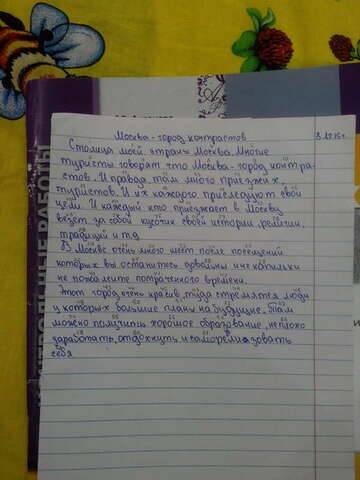 Москва-город контрастов
Столица моей страны Москва. Многие
туристы говорят что Москва-город контра-
стов. И правда, там много приезжех,
туристов. И их каждого приследуют свои
цели. И каждый кто приезжает в Москву
везёт за собой кусочек своей истории, религии,
традиций и т.д
В Москве очень много мест после посещений
которых вы останитесь довольны и не капильки
не пожалеите потраченого времени.
Этот город очень красив, туда стремятся люди
у которых большие планы на будующие. Там
можно получить хорошое образование, неплохо
заработать, отдохнуть и саморелизовать
себя
РАБОТЫ